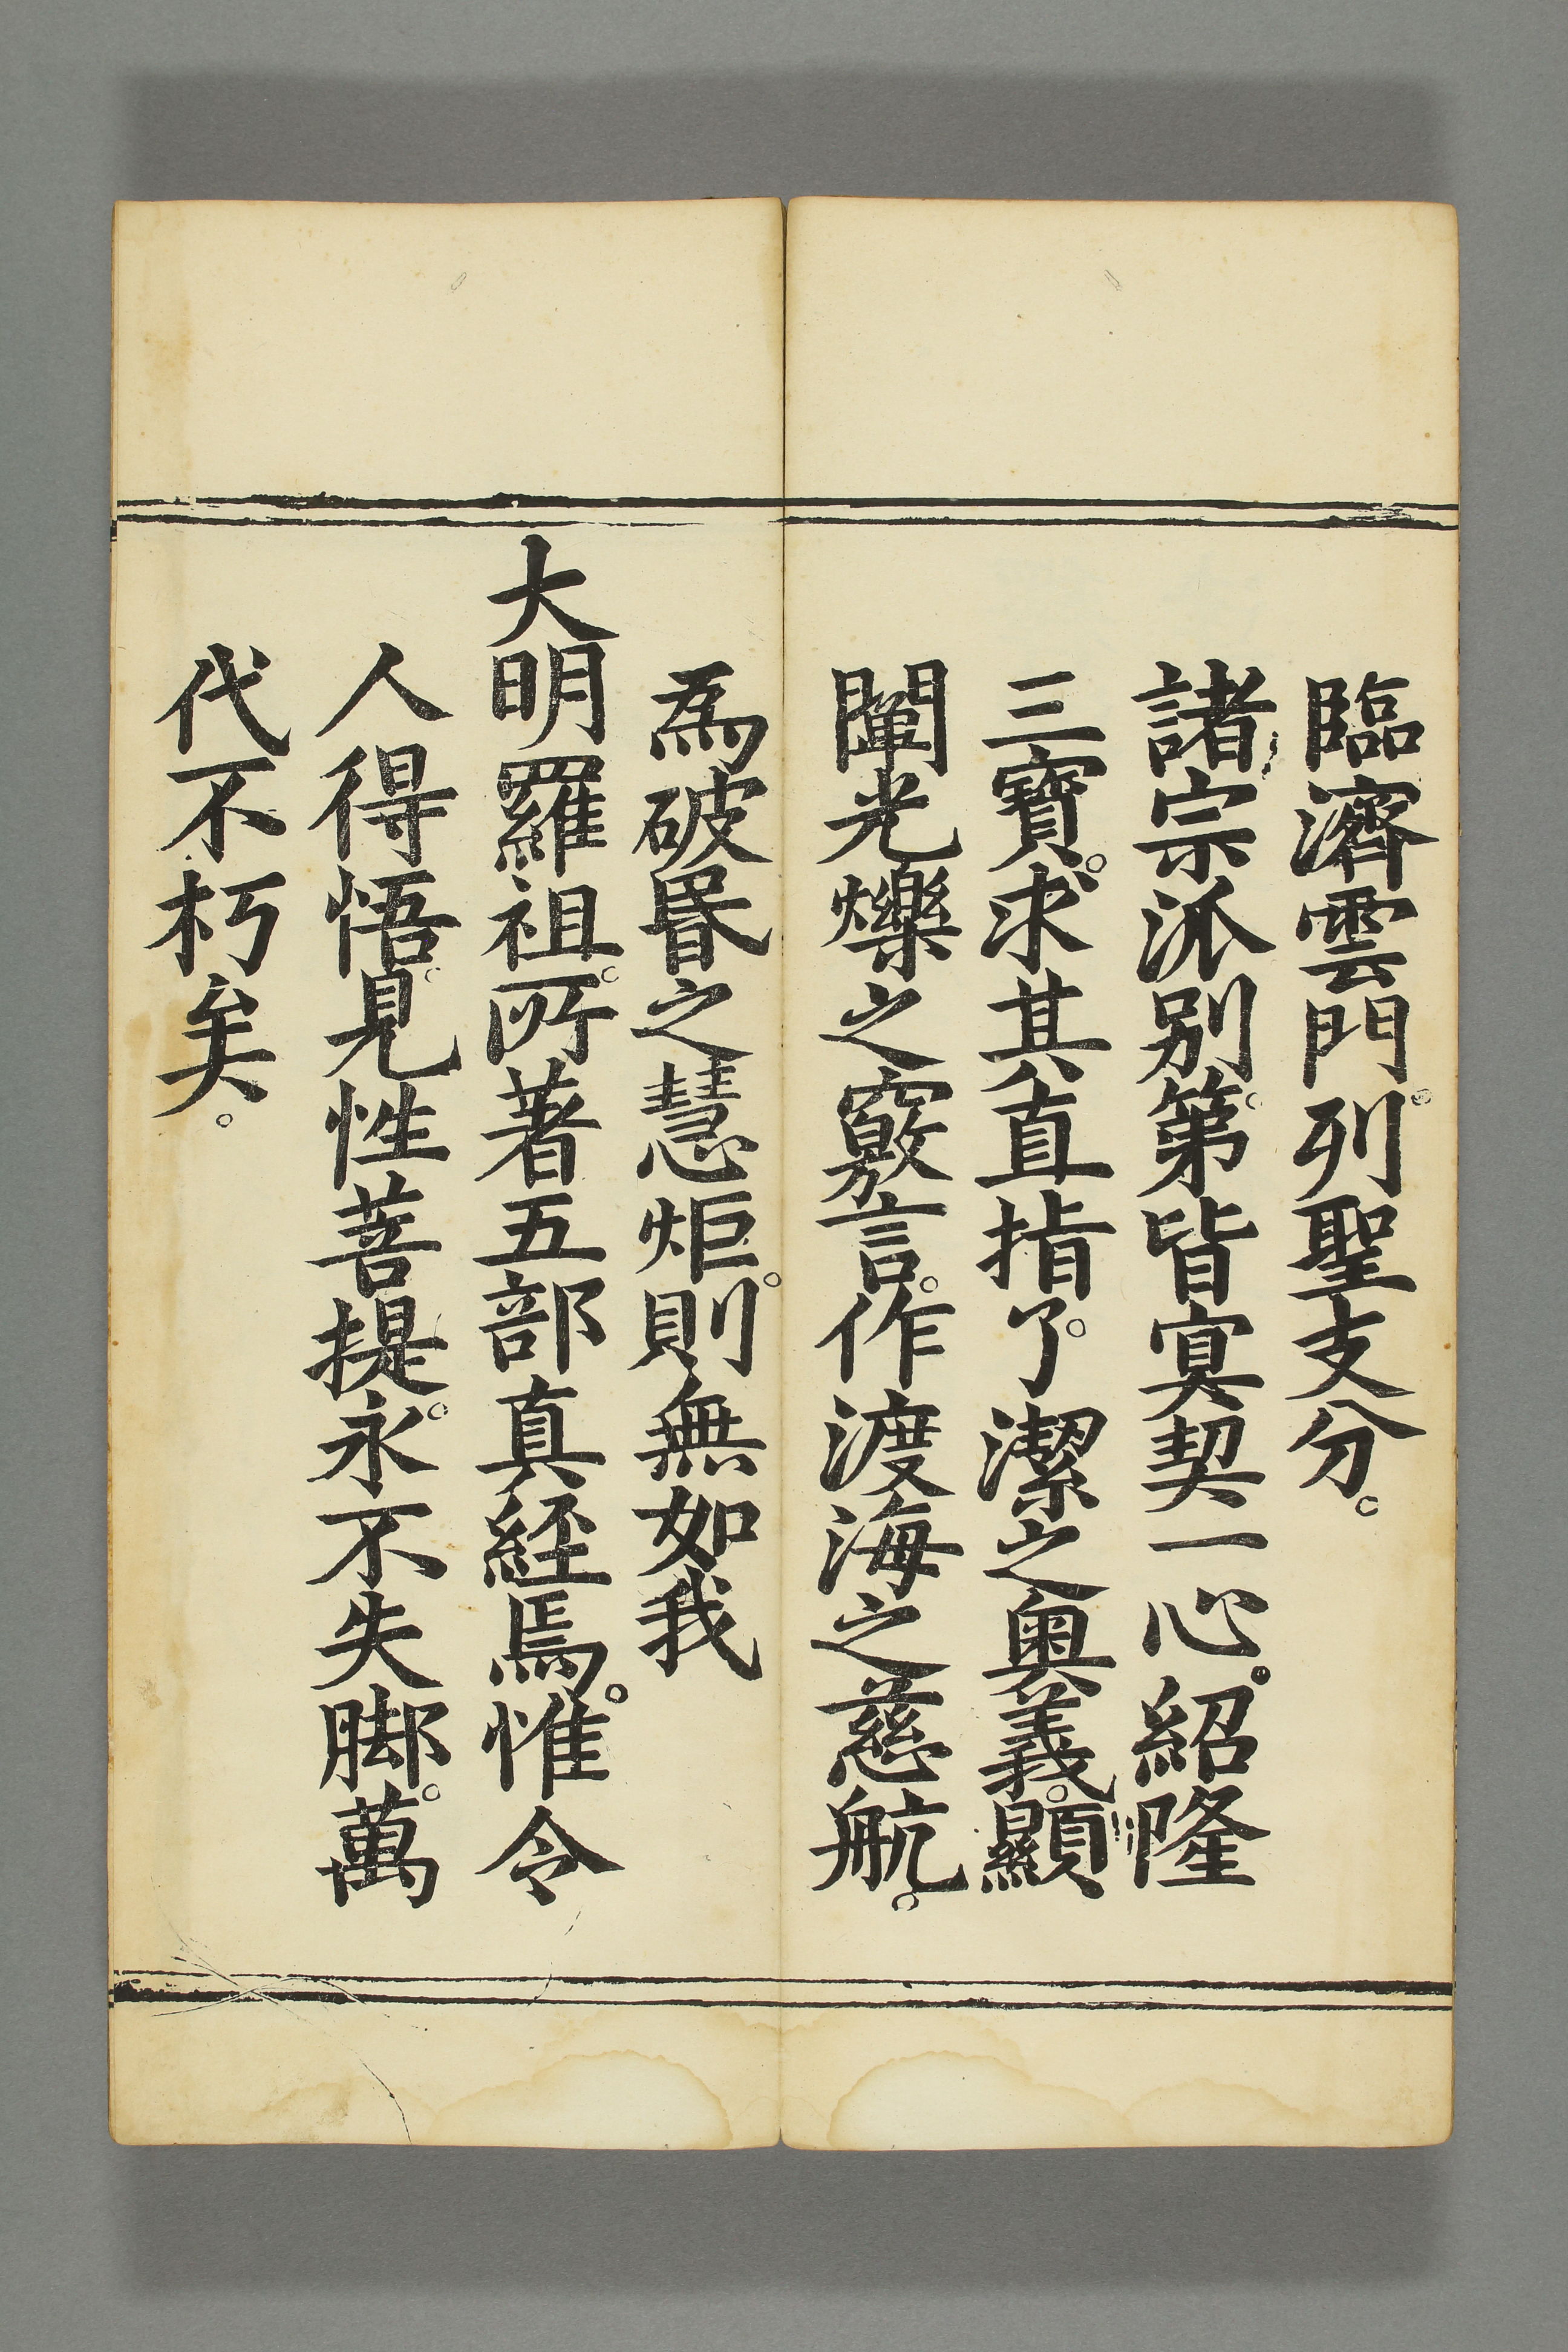 臨濟雲門。列聖支分。
諸宗派别。第皆㝠契一心。紹隆
三寳。求其直指。了潔之奥義。顯
闡光爍之竅言。作渡海之慈航。
為破昬之慧炬。則無如我
大明羅祖。所著五部真経焉。惟令
人得悟。見性菩提。永不失脚。萬
代不朽矣。